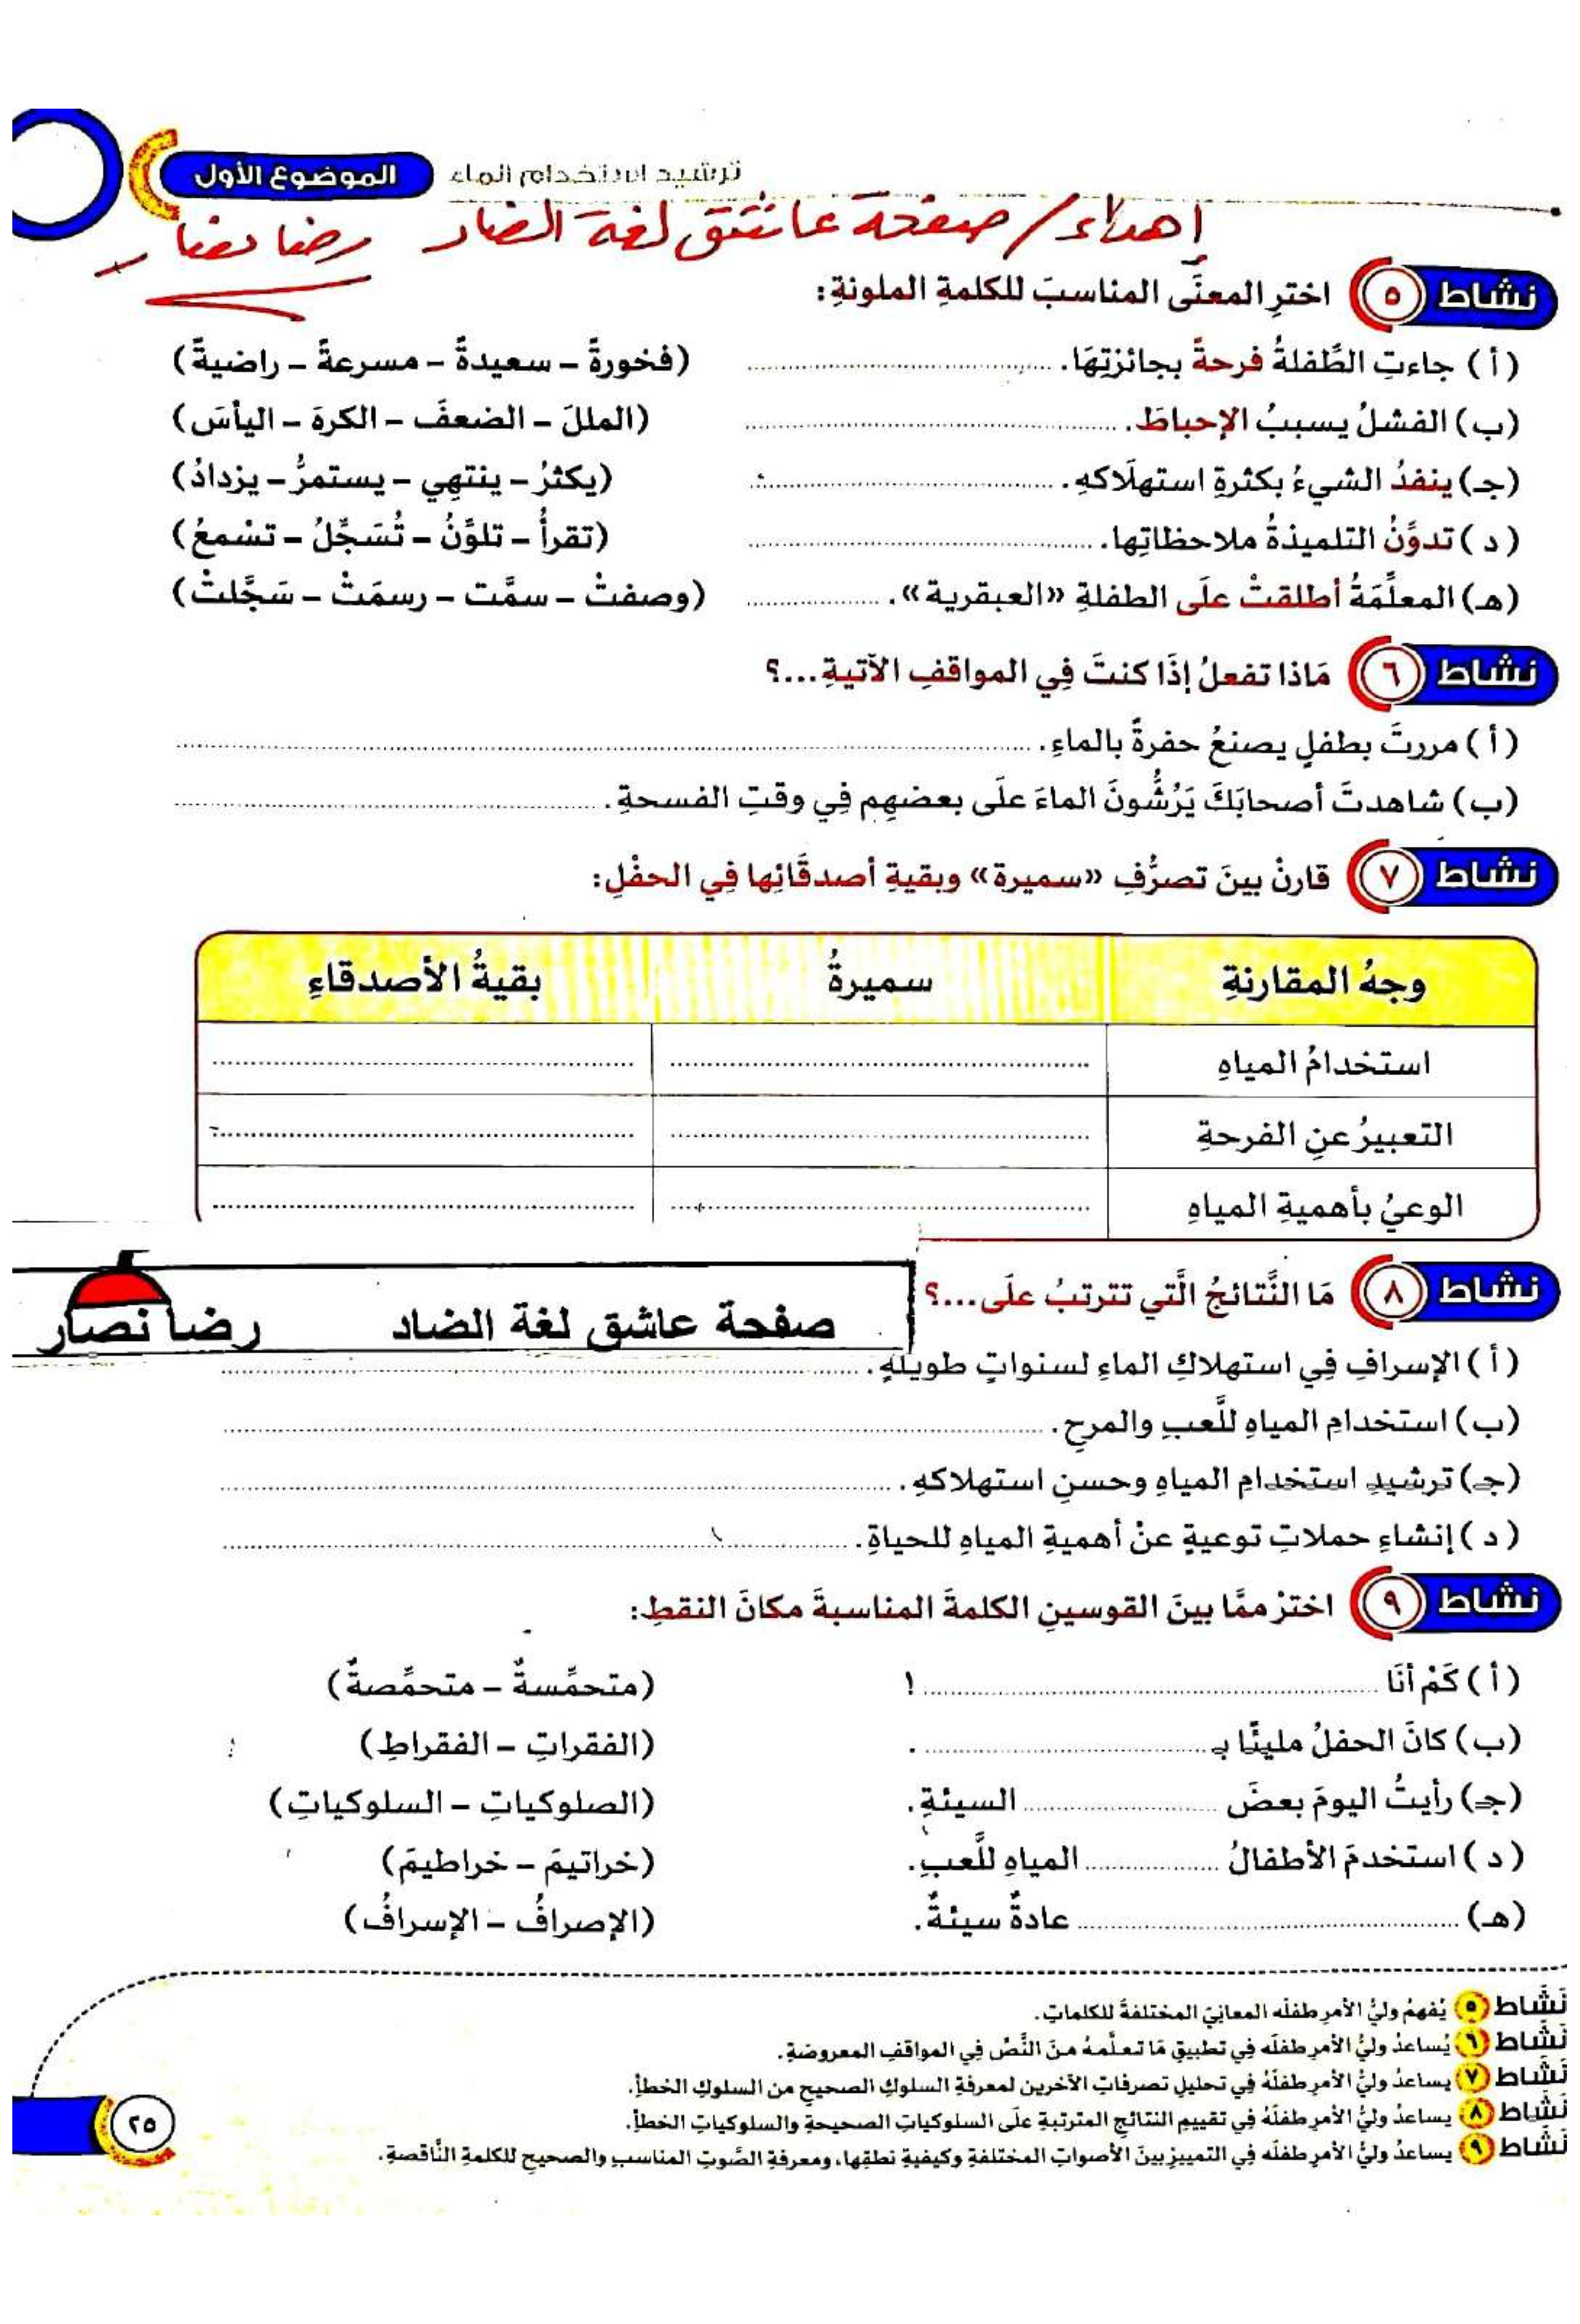 ترشيد استخدام الماء
الموضوع الأول
إهداء / صفحة عاشق لغة الضاد رضا نصار
نشاط ٥ اخترِ المعنَى المناسبَ للكلمةِ الملونةِ:
(أ) جاءتِ الطِّفلةُ فرحةً بجائزتِهَا. (فخورةً – سعيدةً – مسرعةً – راضيةً)
(ب) الفشلُ يسببُ الإحباطَ. (المللَ – الضعفَ – الكرهَ – اليأسَ)
(جـ) ينفدُ الشيءُ بكثرةِ استهلَاكهِ. (يكثرُ – ينتهِي – يستمرُّ – يزدادُ)
(د) تدوِّنُ التلميذةُ ملاحظاتِها. (تقرأُ – تلوِّنُ – تُسَجِّلُ – تسْمعُ)
(هـ) المعلِّمَةُ أطلقتْ علَى الطفلةِ «العبقرية». (وصفتْ – سمَّت – رسمَتْ – سَجَّلتْ)
نشاط ٦ مَاذا تفعلُ إذَا كنتَ فِي المواقفِ الآتيةِ...؟
(أ) مررتَ بطفلٍ يصنعُ حفرةً بالماءِ.
(ب) شاهدتَ أصحابَكَ يَرُشُّونَ الماءَ علَى بعضهِم فِي وقتِ الفسحةِ.
نشاط ٧ قارنْ بينَ تصرُّفِ «سميرة» وبقيةِ أصدقَائِها فِي الحفْلِ:
وجهُ المقارنةِ سميرةُ بقيةُ الأصدقاءِ
استخدامُ المياهِ
التعبيرُ عنِ الفرحةِ
الوعيُ بأهميةِ المياهِ
نشاط ٨ مَا النَّتائجُ الَّتي تترتبُ علَى...؟
صفحة عاشق لغة الضاد رضا نصار
(أ) الإسرافِ فِي استهلاكِ الماءِ لسنواتٍ طويلةٍ.
(ب) استخدامِ المياهِ للَّعبِ والمرحِ.
(جـ) ترشيدِ استخدامِ المياهِ وحسنِ استهلاكهِ.
(د) إنشاءِ حملاتِ توعيةٍ عنْ أهميةِ المياهِ للحياةِ.
نشاط ٩ اخترْ ممَّا بينَ القوسينِ الكلمةَ المناسبةَ مكانَ النقطِ:
(أ) كَمْ أنَا ! (متحمِّسةٌ – متحمِّصةٌ)
(ب) كانَ الحفلُ مليئًا بـ . (الفقراتِ – الفقراطِ)
(جـ) رأيتُ اليومَ بعضَ السيئةِ. (الصلوكياتِ – السلوكياتِ)
(د) استخدمَ الأطفالُ المياهِ للَّعبِ. (خراتيمَ – خراطيمَ)
(هـ) عادةٌ سيئةٌ. (الإصرافُ – الإسرافُ)
نَشَاط ٥ يُفهمُ وليُّ الأمرِ طفلَه المعانِيَ المختلفةَ للكلماتِ.
نَشَاط ٦ يُساعدُ وليُّ الأمرِ طفلَه فِي تطبيقِ مَا تعلَّمهُ منَ النَّصِّ فِي المواقفِ المعروضةِ.
نَشَاط ٧ يساعدُ وليُّ الأمرِ طفلَهُ فِي تحليلِ تصرفاتِ الآخرين لمعرفةِ السلوكِ الصحيحِ من السلوكِ الخطأِ.
نَشَاط ٨ يساعدُ وليُّ الأمرِ طفلَهُ فِي تقييمِ النتائجِ المترتبةِ علَى السلوكياتِ الصحيحةِ والسلوكياتِ الخطأِ.
نَشَاط ٩ يساعدُ وليُّ الأمرِ طفلَه فِي التمييزِ بينَ الأصواتِ المختلفةِ وكيفيةِ نطقِها، ومعرفةِ الصَّوتِ المناسبِ والصحيحِ للكلمةِ النَّاقصةِ.
٢٥